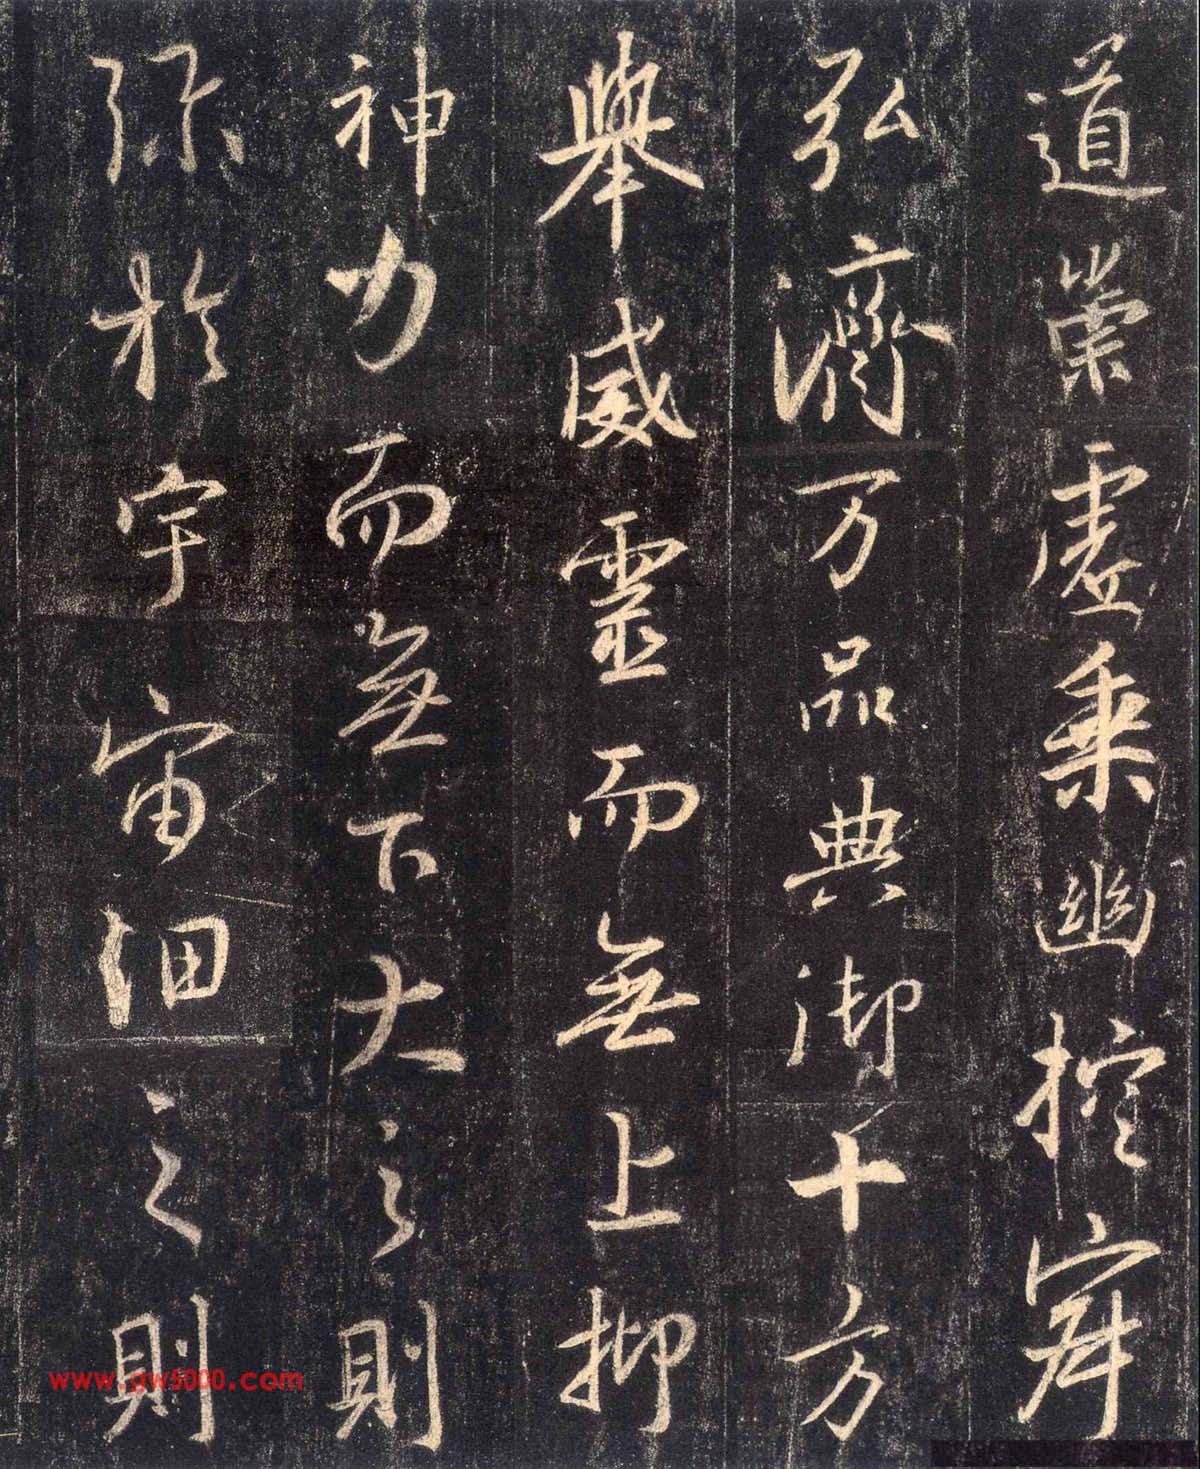 道崇虛乘幽控寂
弘濟万品典御十方
舉威靈而無上抑
神力而無下大之則
弥於宇宙細之則
www.gw5000.com